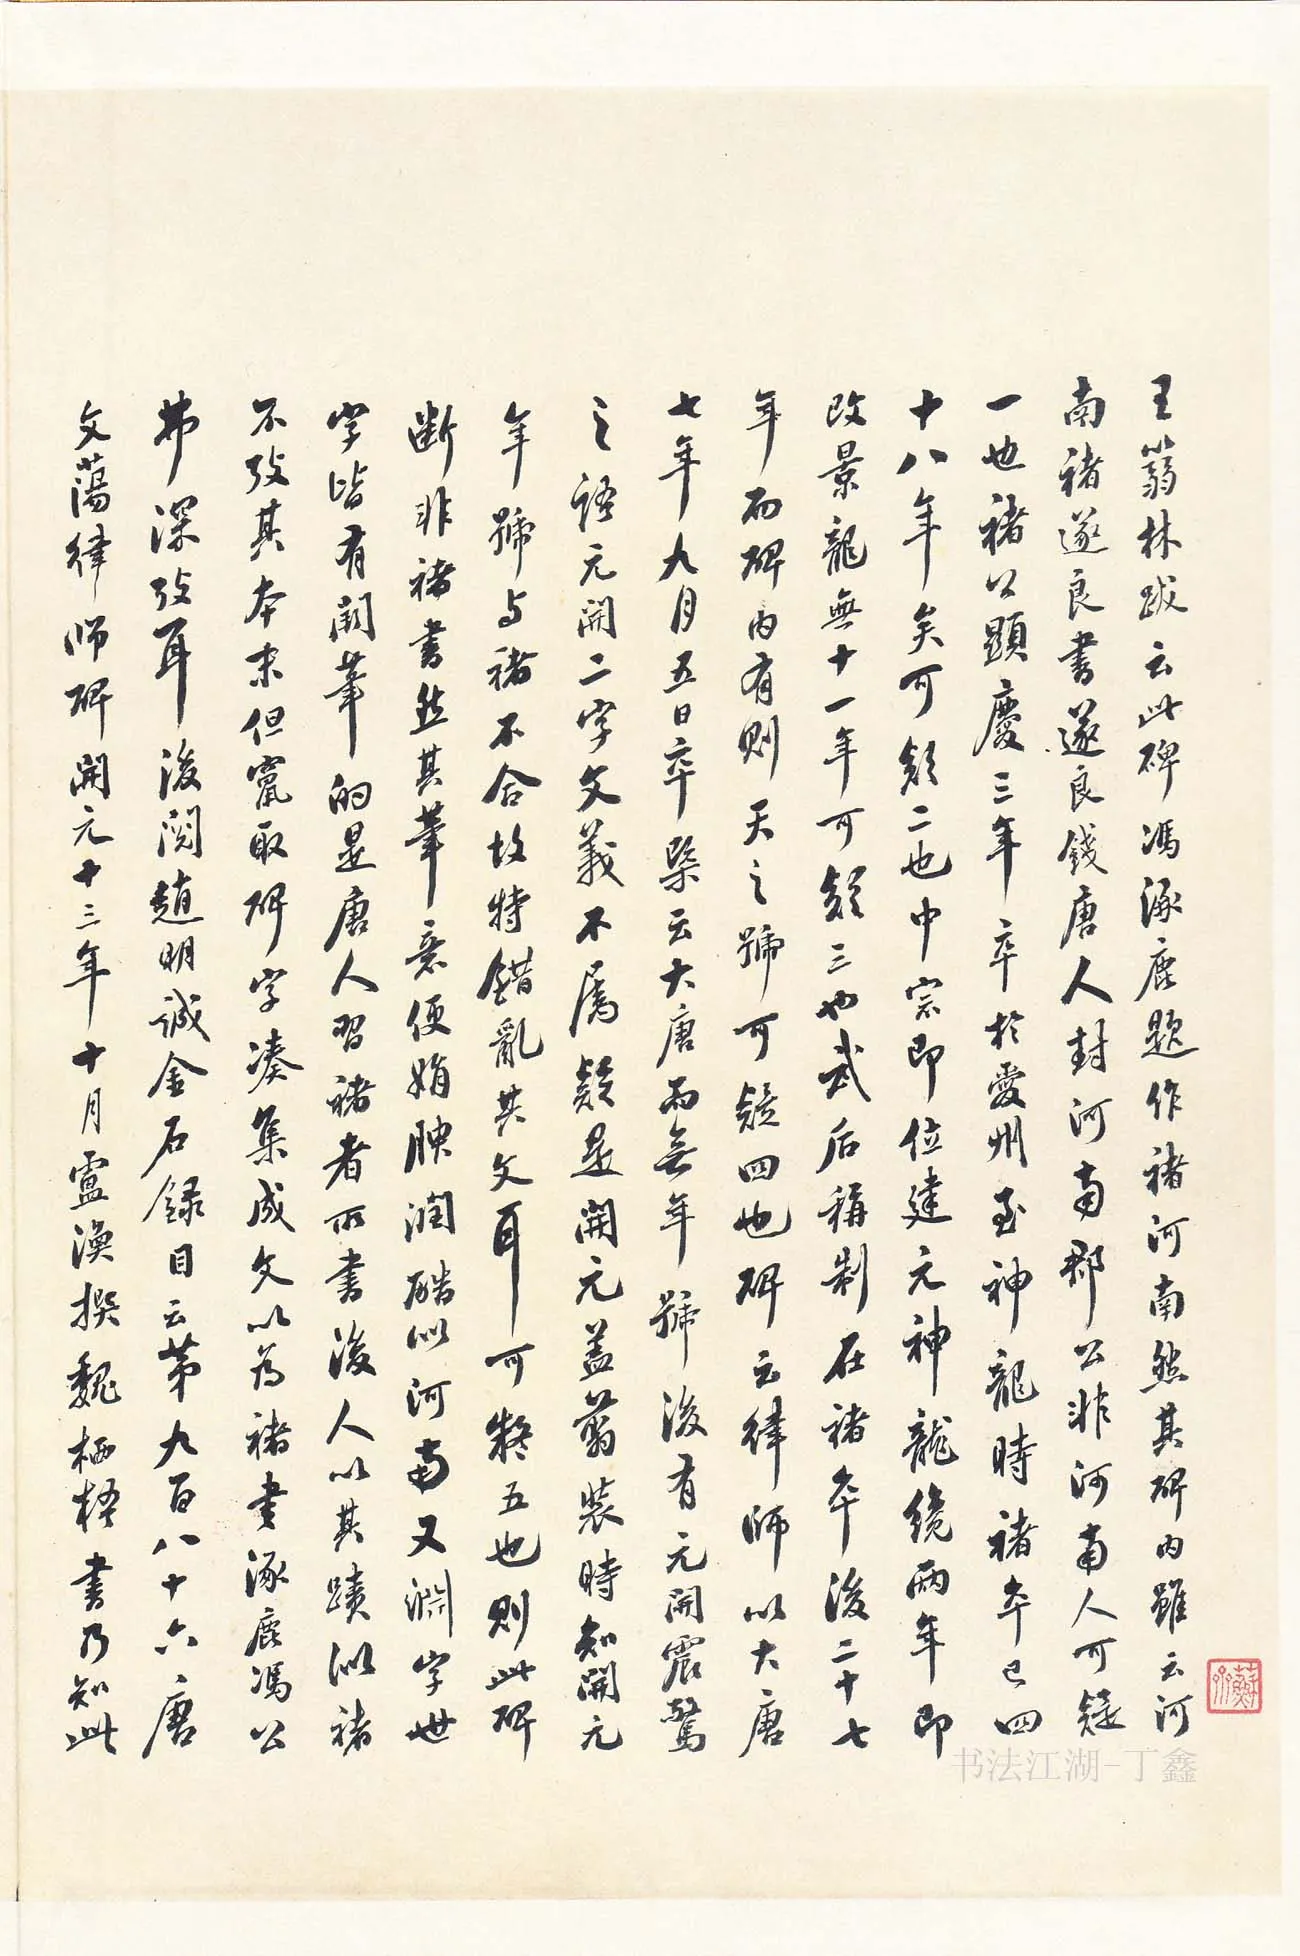 王蒻林跋云此碑馮涿鹿題作褚河南然其碑内雖云河
南褚遂良書遂良錢唐人封河南郡公非河南人可疑
一也褚公顯慶三年卒於愛州至神龍時褚卒已四
十八年矣可疑二也中宗即位建元神龍纔兩年即
改景龍無十一年可疑三也武后稱制在褚卒後二十七
年而碑内有則天之號可疑四也碑云律師以大唐
七年九月五日卒槩云大唐而無年號後有元開震驚
之語元開二字文義不屬疑是開元蓋翦裝時知開元
年號与褚不合故特錯亂其文耳可疑五也則此碑
斷非褚書然其筆意便娟腴潤酷似河南又淵字世
字皆有闕筆的是唐人習褚者所書後人以其蹟似褚
不攷其本末但竄取碑字湊集成文以為褚書涿鹿馮公
弗深攷耳後閱趙明誠金石録目云第九百八十六唐
文蕩律師碑開元十三年十月盧渙撰魏栖梧書乃知此
书法江湖-丁鑫